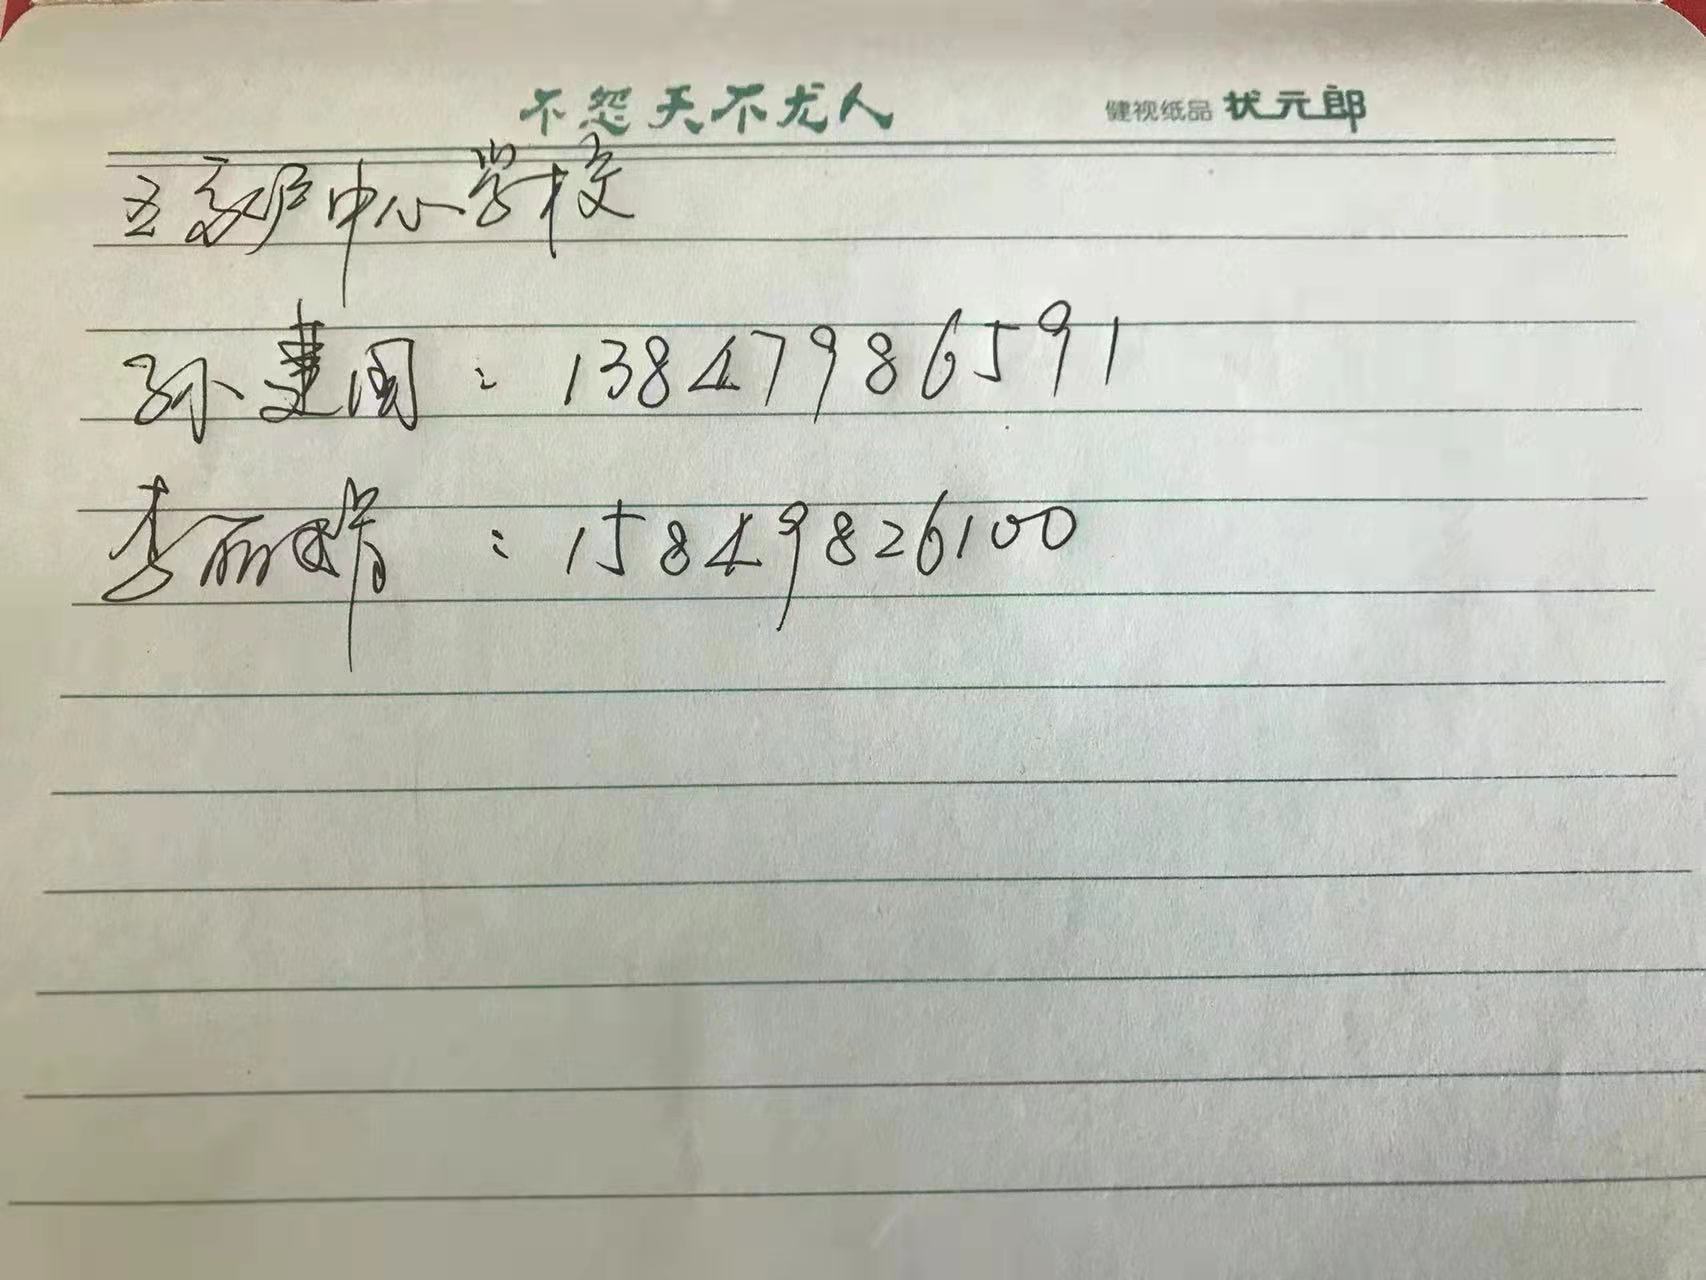 不怨天不尤人 健视纸品 状元郎
五家户中心学校
孙建国：13847986591
李丽 ：15849826100